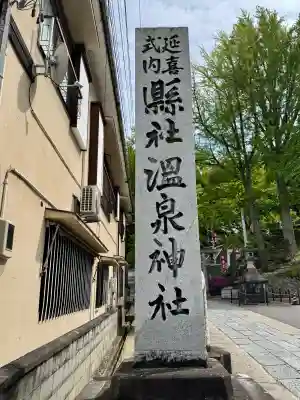 延喜
式内
縣社温泉神社